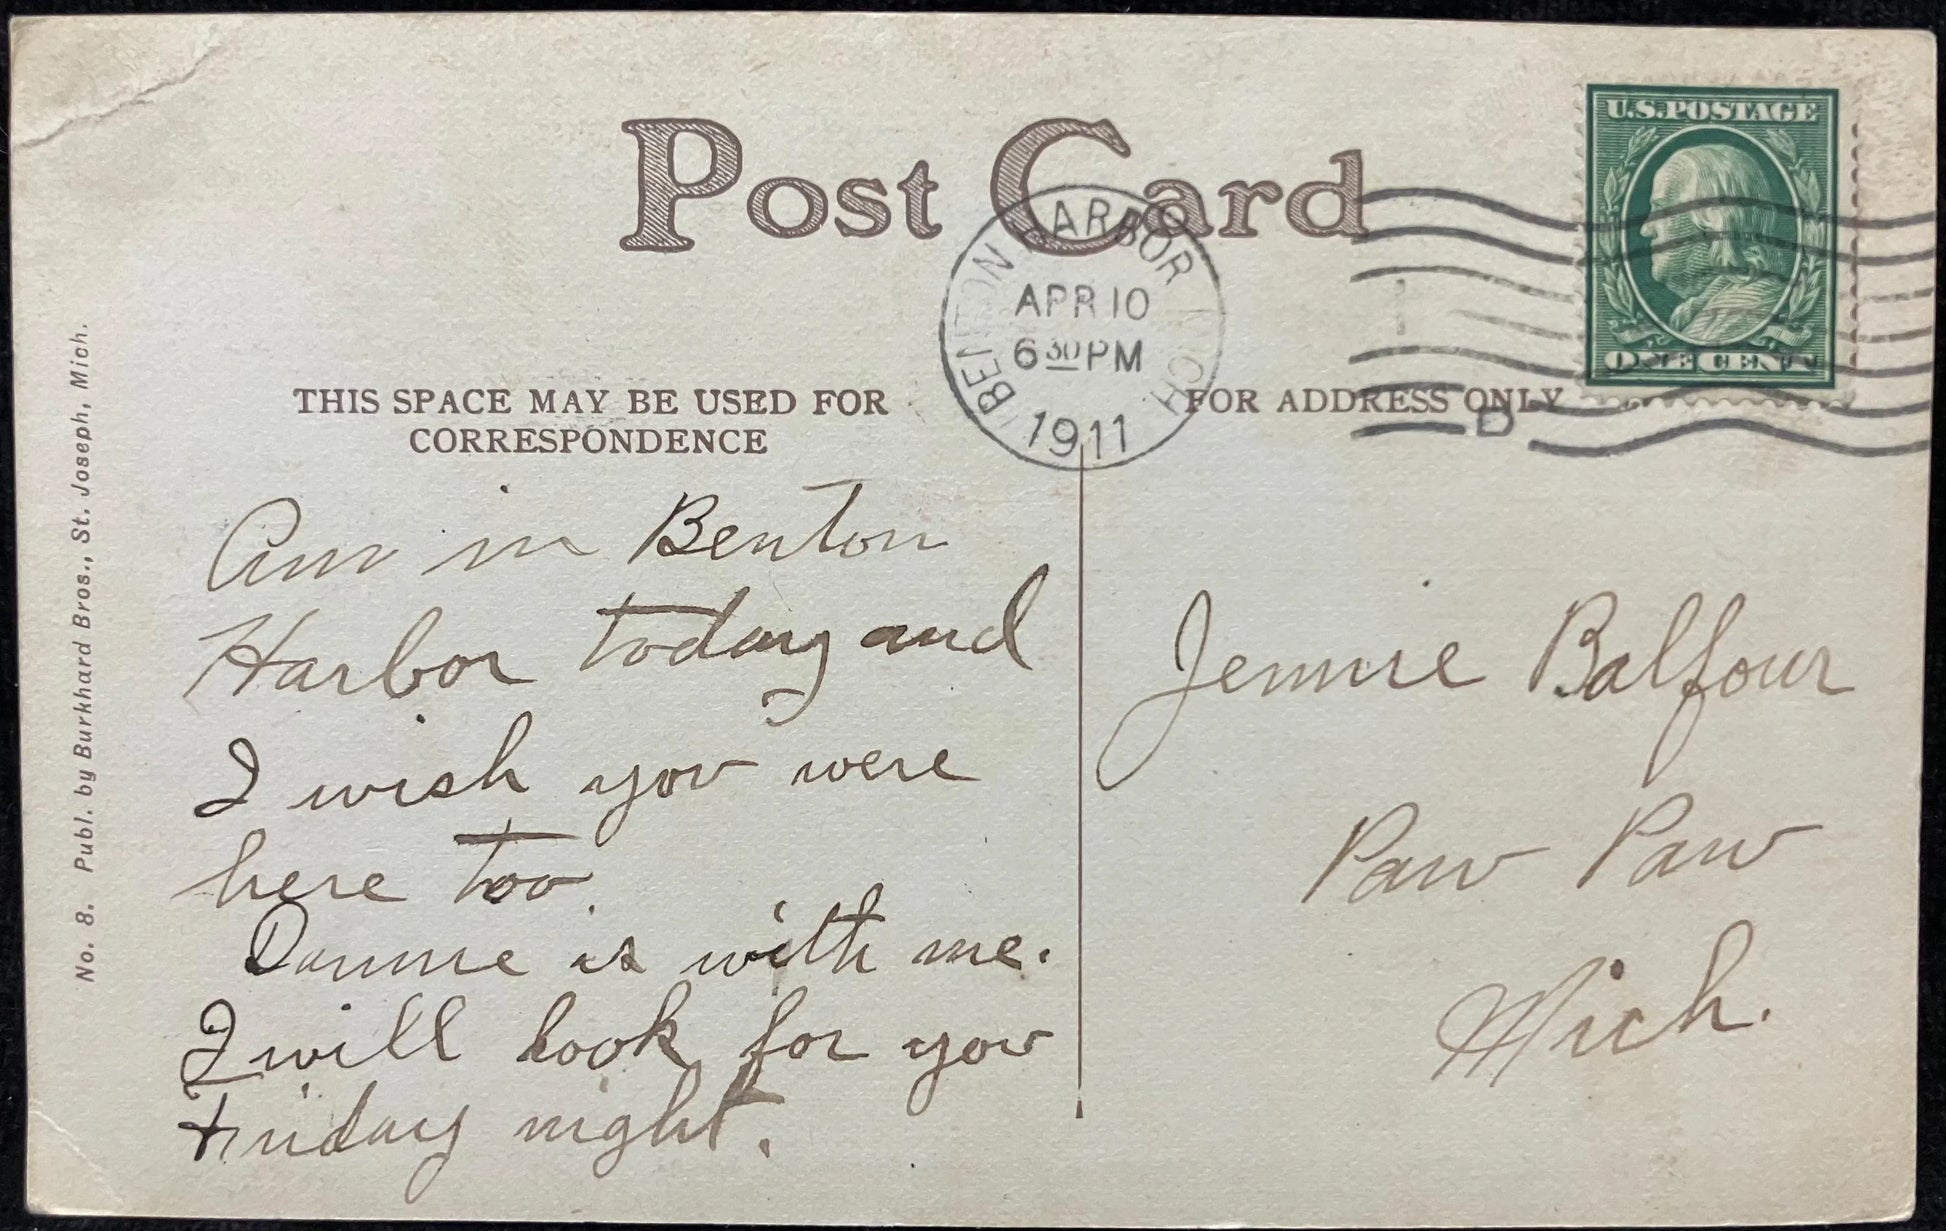 Post Card
U.S. POSTAGE
ONE CENT
BENTON HARBOR MICH
APR 10
6 30 PM
1911
D
THIS SPACE MAY BE USED FOR
CORRESPONDENCE
FOR ADDRESS ONLY
Am in Benton
Harbor today and
I wish you were
here too.
Dannie is with me.
I will look for you
Friday night.
Jennie Balfour
Paw Paw
Mich.
No. 8. Publ. by Burkhard Bros., St. Joseph, Mich.